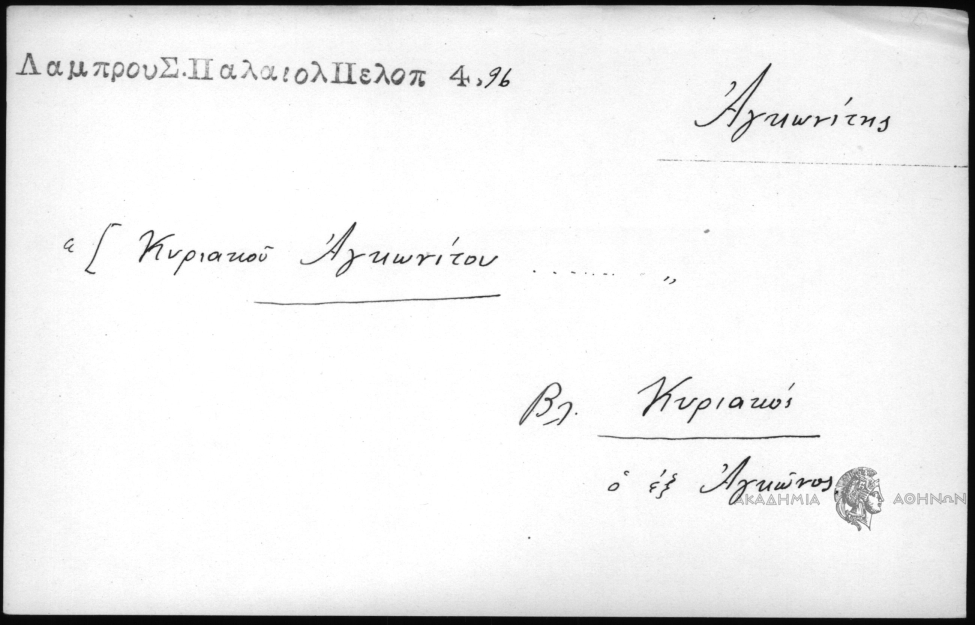 ΛαμπρουΣ.ΠαλαιολΠελοπ 4,96
Ἀγκωνίτης
" [ Κυριακοῦ Ἀγκωνίτου ........ "
Βλ. Κυριακός
ὁ ἐξ Ἀγκῶνος.
ΑΚΑΔΗΜΙΑ ΑΘΗΝΩΝ